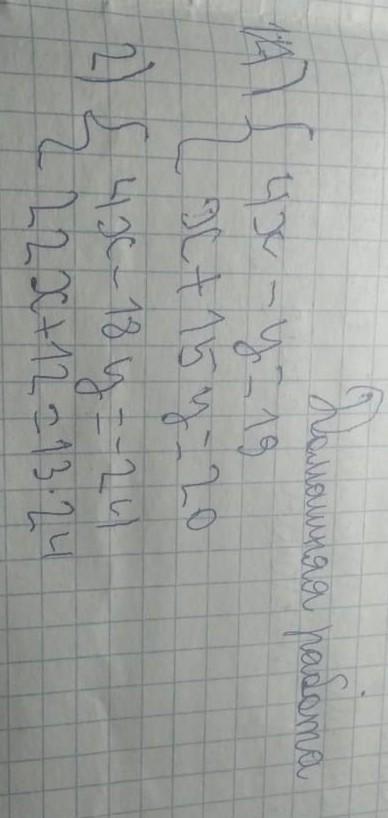 Домашняя работа
1) { 4x - y = 19
x + 15y = 20
2) { 4x - 18y = -24
22x + 12 = 13.24